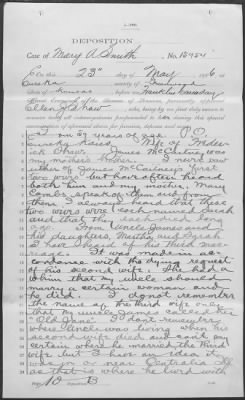 DEPOSITION
Case of Mary A. Smith, No. 
On this 23" day of May, 6, at
Eureka county of
State of before me, Franklin
Special Examiner of the Bureau of Pensions, personally appeared
Ellen Shaw, who, being by me first duly sworn to
answer truly all interrogatories propounded to h during this special
examination of aforesaid claim for pension, deposes and says:
I am 57 years of age. P.O.
Eureka Wife of
Shaw. James was
my mother's brother. I never saw
either of James first
two wives but have often heard
both him and my mother, Mary
speak of them and from
them I always heard that these
two wives were both named Sarah
and that they each died long
ago. From Uncle James and
his daughters, Martha and Sarah
I have heard of his third mar-
riage. It was made in ac-
cordance with the dying request
of his second wife. She had a
whim that my uncle should
marry a certain woman and
he did. I do not remember
the name of the third wife only
that my uncle James called her
"Old Jane". I don't remember
where Uncle was living when his
second wife died and can't say
certain where he married the third
wife but I have an idea it
was in or near Centralia Ill
as that is where he lived with
Page 10 B